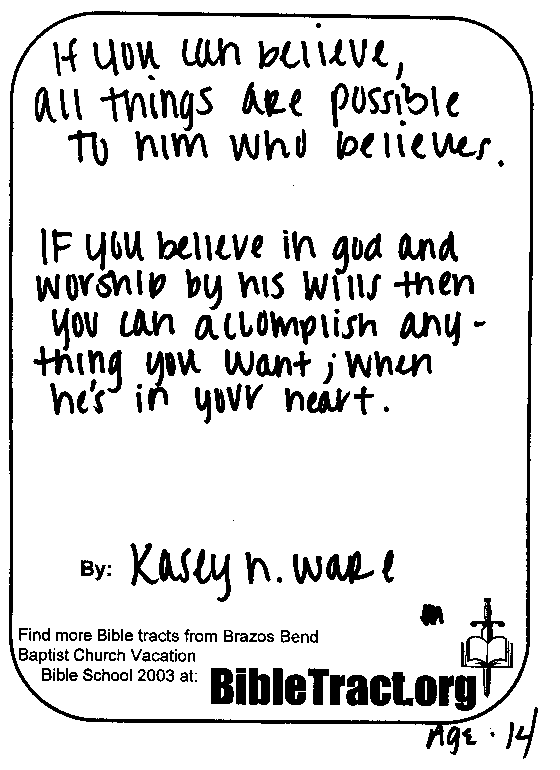 If you can believe,
all things are possible
to him who believes.
IF you believe in god and
worship by his wills then
you can accomplish any-
thing you want; when
he's in your heart.
By: Kasey n. ware
Find more Bible tracts from Brazos Bend
Baptist Church Vacation
Bible School 2003 at: BibleTract.org
Age. 14